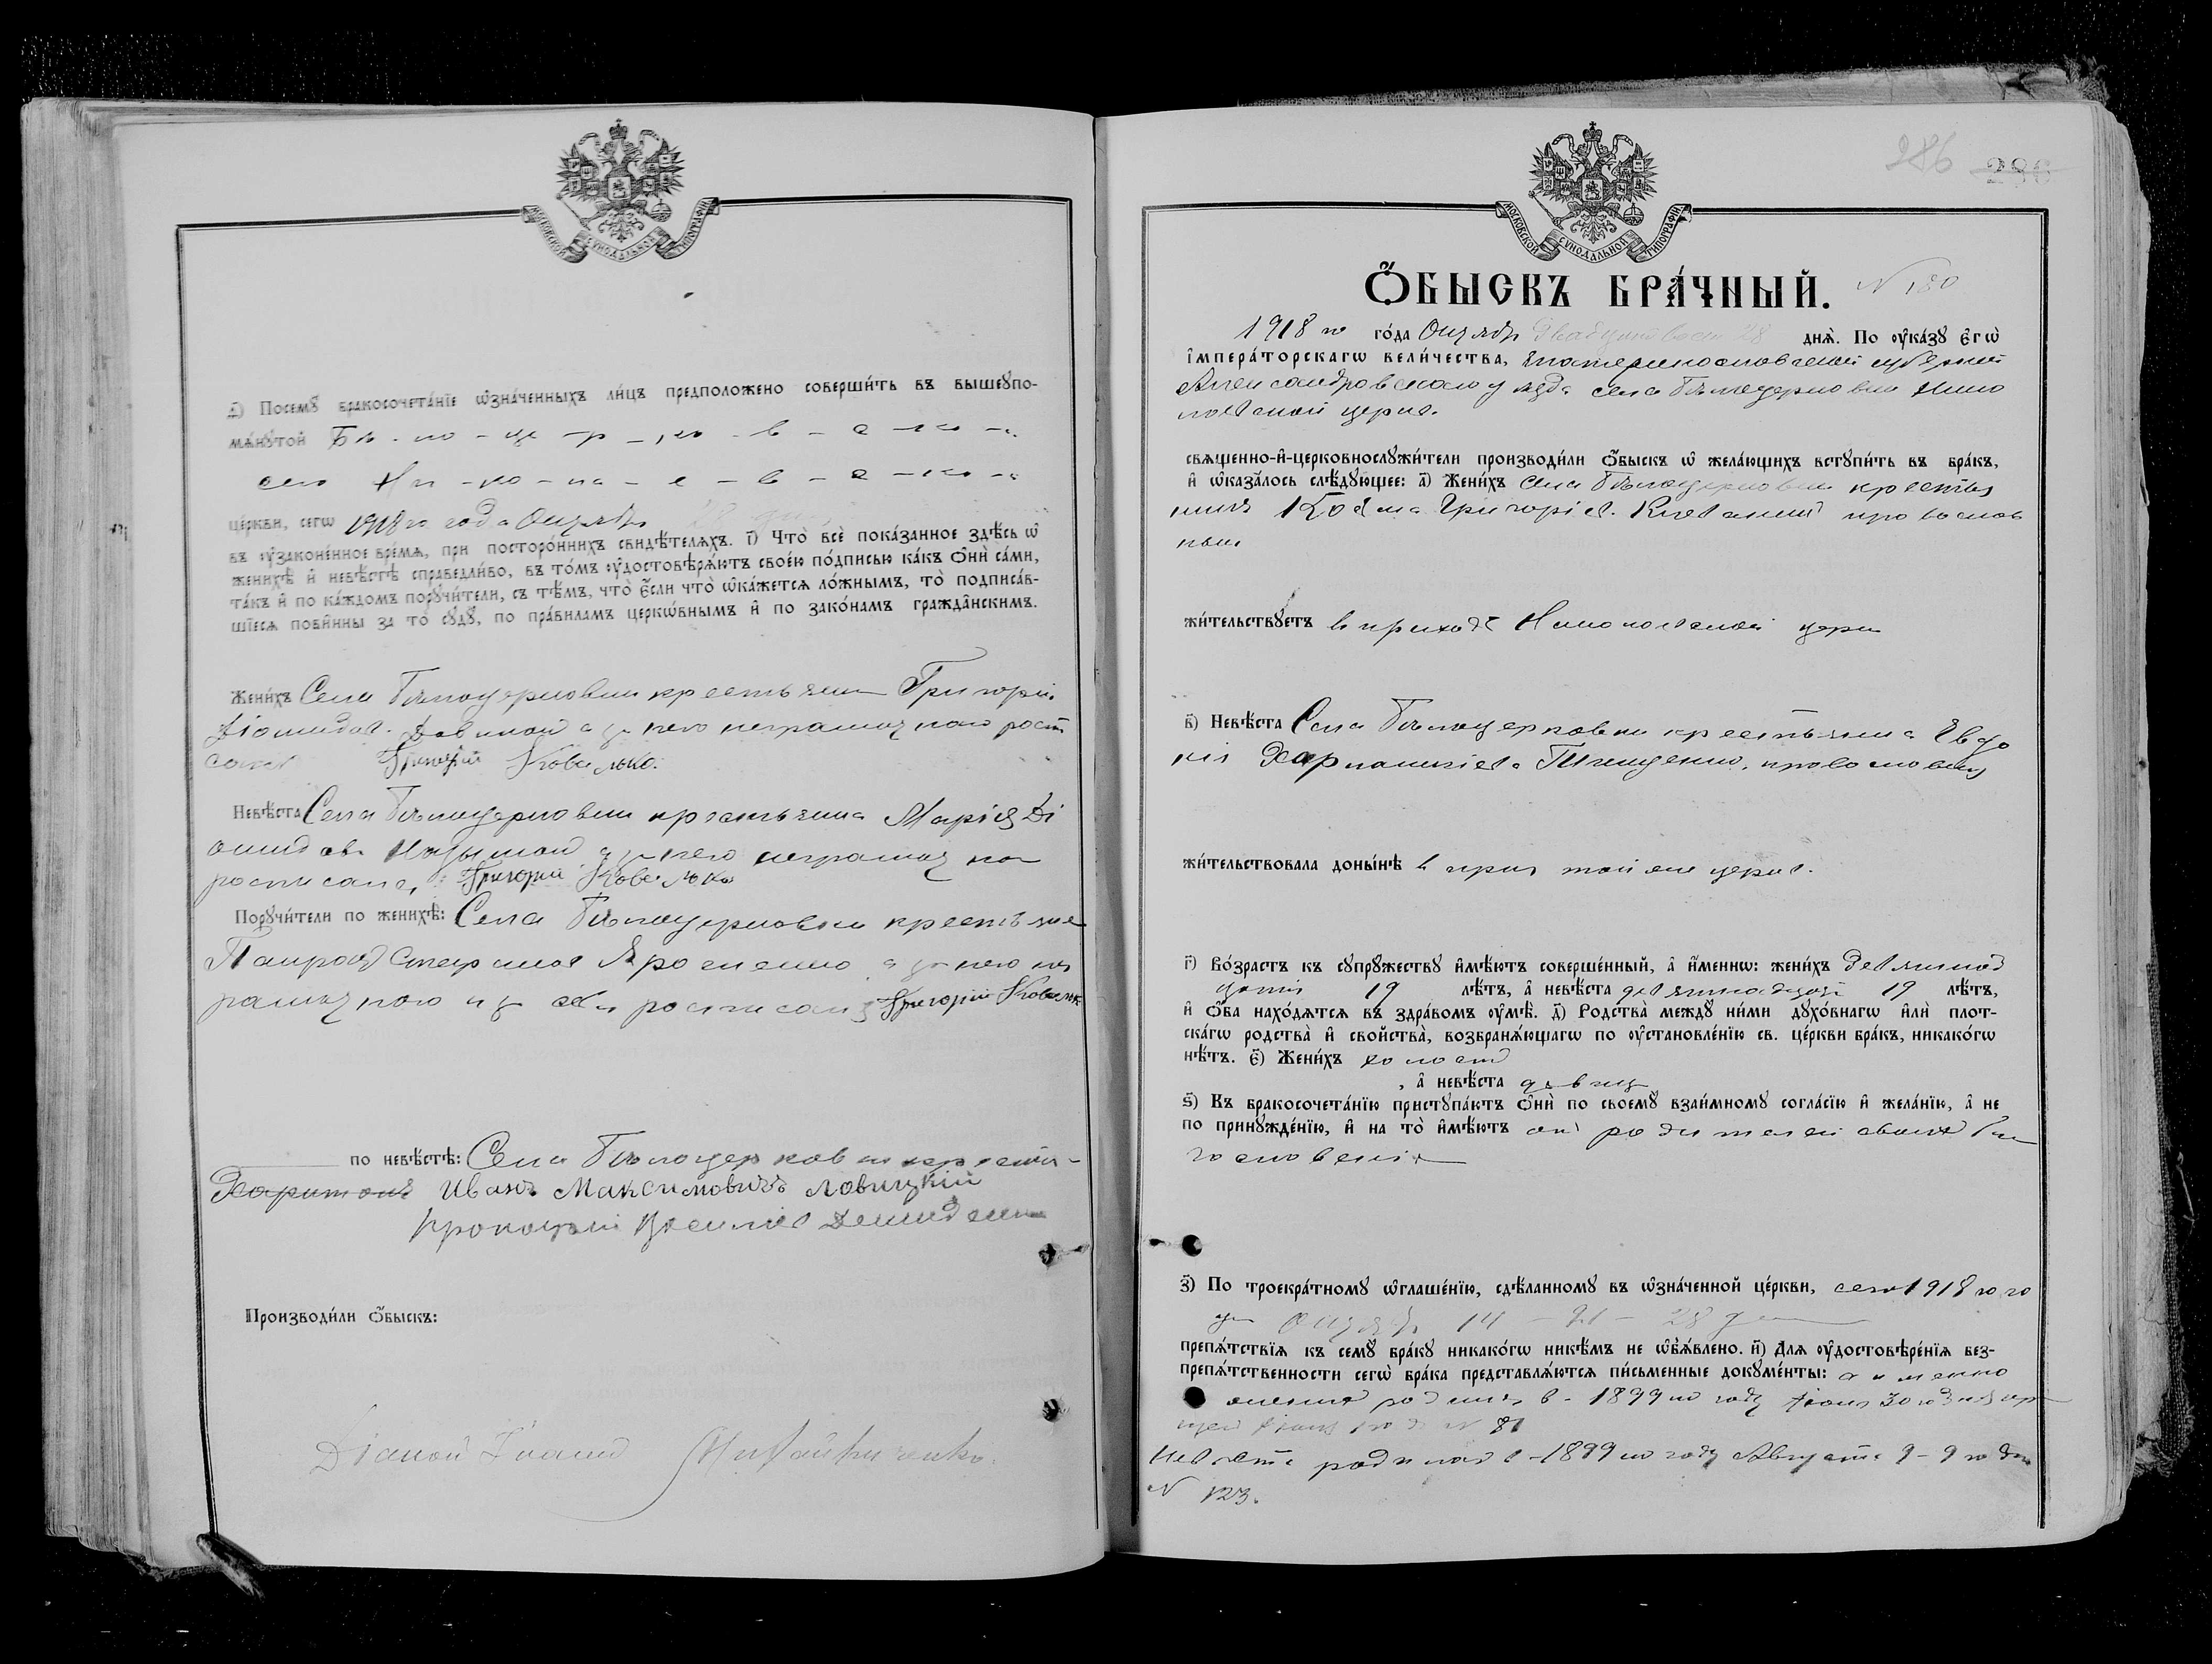 МОСКОВСКОЙ СѴНОДАЛЬНОЙ ТИПОГРАФІИ
д҃) Посемꙋ бракосочета́нїе ѡ҆зна́ченныхъ ли́цъ предположено соверши́ть въ вышеꙋпо-
мѧ́нꙋтой Бѣ - ло - це - р - ко - в - с - ко - й
село Ни - ко - ла - е - в - с - ко - й
це́ркви, сегѡ 1918 го года Октябр 28 дня
въ ᲂу҆законе́нное вре́мѧ, при посторо́ннихъ свидѣ́телѧхъ. і҃) Что̀ всѐ пока́занное здѣ́сь ѡ҆
женихѣ̀ и҆ невѣ́стѣ справедли́во, въ то́мъ ᲂу҆достовѣрѧ́ютъ свое́ю по́дписью ка́къ ѻ҆нѝ са́ми,
та́къ и҆ по ка́ждомъ порꙋчи́тели, съ тѣ́мъ, что̀ є҆́сли что̀ ѡ҆ка́жетсѧ ло́жнымъ, то̀ подписа́в-
шїесѧ пови́нны за то̀ сꙋдꙋ̀, по пра́виламъ церкѡ́внымъ и҆ по зако́намъ гражда̂нскимъ.
Жени́хъ Села Бѣлоцерковки крестьянин Григорій
Діомидов. а за него неграмотного роспи
сался Григорій Ковалько.
Невѣ́ста Села Бѣлоцерковки крестьянка Марія Ді
омидов. а за нею неграмотную
росписался Григорій Ковалько
Порꙋчи́тели по женихѣ̀: Села Бѣлоцерковки крестьяне
Стефанов Ярошенко а за него нег
рамотного и за себя росписался Григорій Ковальк
по невѣ́стѣ: Села Бѣлоцерковки крестьян
Харитонъ Иванъ Максимовичъ Ловицкій
Прокофій Василіев Демиденко
Произво́дили ѻ҆́быскъ:
Діаконъ Іоаннъ
286 286
МОСКОВСКОЙ СѴНОДАЛЬНОЙ ТИПОГРАФІИ
Ѻ҆́БЫСКЪ БРА́ЧНЫЙ. N 180
1918 го го́да Октябр Двадцать восьм 28 днѧ̀. По ᲂу҆ка́зꙋ є҆гѡ̀
і҆мпера́торскагѡ вели́чества, Екатеринославской губерніи
Александровского уезда села Бѣлоцерковки Нико
лаевской церкв.
свѧще́нно-и҆-церковнослꙋжи́тели производи́ли ѻ҆́быскъ ѡ҆ жела́ющихъ встꙋпи́ть въ бра́къ,
и҆ ѡ҆каза́лось слѣ́дꙋющее: а҃) Жени́хъ села Бѣлоцерковки крестья
нинъ Козма Григоріев. православ
ный
жи́тельствꙋетъ в приходѣ Николаевской церкв
в҃) Невѣ́ста Села Бѣлоцерковки крестьянка Евдо
кія Харлампіева православн
жи́тельствовала доны́нѣ в прих той же церкв.
г҃) Во́зрастъ къ сꙋпрꙋ́жествꙋ и҆мѣ́ютъ соверше́нный, а҆ и҆́меннѡ: жени́хъ девятнад
цать 19 лѣ́тъ, а҆ невѣ́ста девятнадцать 19 лѣ́тъ,
и҆ ѻ҆́ба нахо́дѧтсѧ въ здра́вомъ ᲂу҆мѣ̀. д҃) Родства̀ междꙋ̀ ни́ми дꙋхо́внагѡ и҆лѝ плот-
ска́гѡ родства̀ и҆ сво́йства, возбранѧ́ющагѡ по ᲂу҆становле́нїю св. це́ркви бра́къ, никако́гѡ
нѣ́тъ. є҃) Жени́хъ холост
, а҆ невѣ́ста девица
ѕ҃) Къ бракосочета́нїю пристꙋпа́ютъ ѻ҆нѝ по своемꙋ̀ взаи́мномꙋ согла́сїю и҆ жела́нїю, а҆ не
по принꙋжде́нїю, и҆ на то̀ и҆мѣ́ютъ от родителей своих бла
гословеніе
з҃) По троекра́тномꙋ ѡ҆глаше́нїю, сдѣ́ланномꙋ въ ѡ҆зна́ченной це́ркви, сего 1918 го го
да Октябр 14 - 21 - 28 дня
препѧ́тствїѧ къ семꙋ̀ бра́кꙋ никако́гѡ никѣ́мъ не ѡ҆б̾ѧ́влено. и҃) Длѧ ᲂу҆достовѣре́нїѧ без-
препѧ́тственности сегѡ̀ бра́ка представлѧ́ютсѧ пи́сьменные докꙋме́нты: а именно
жених родился в - 1899 го году Іюня 30 го
N 81
Невѣста родилась в - 1899 го году Августа 9 - 9 го дня
N 123.